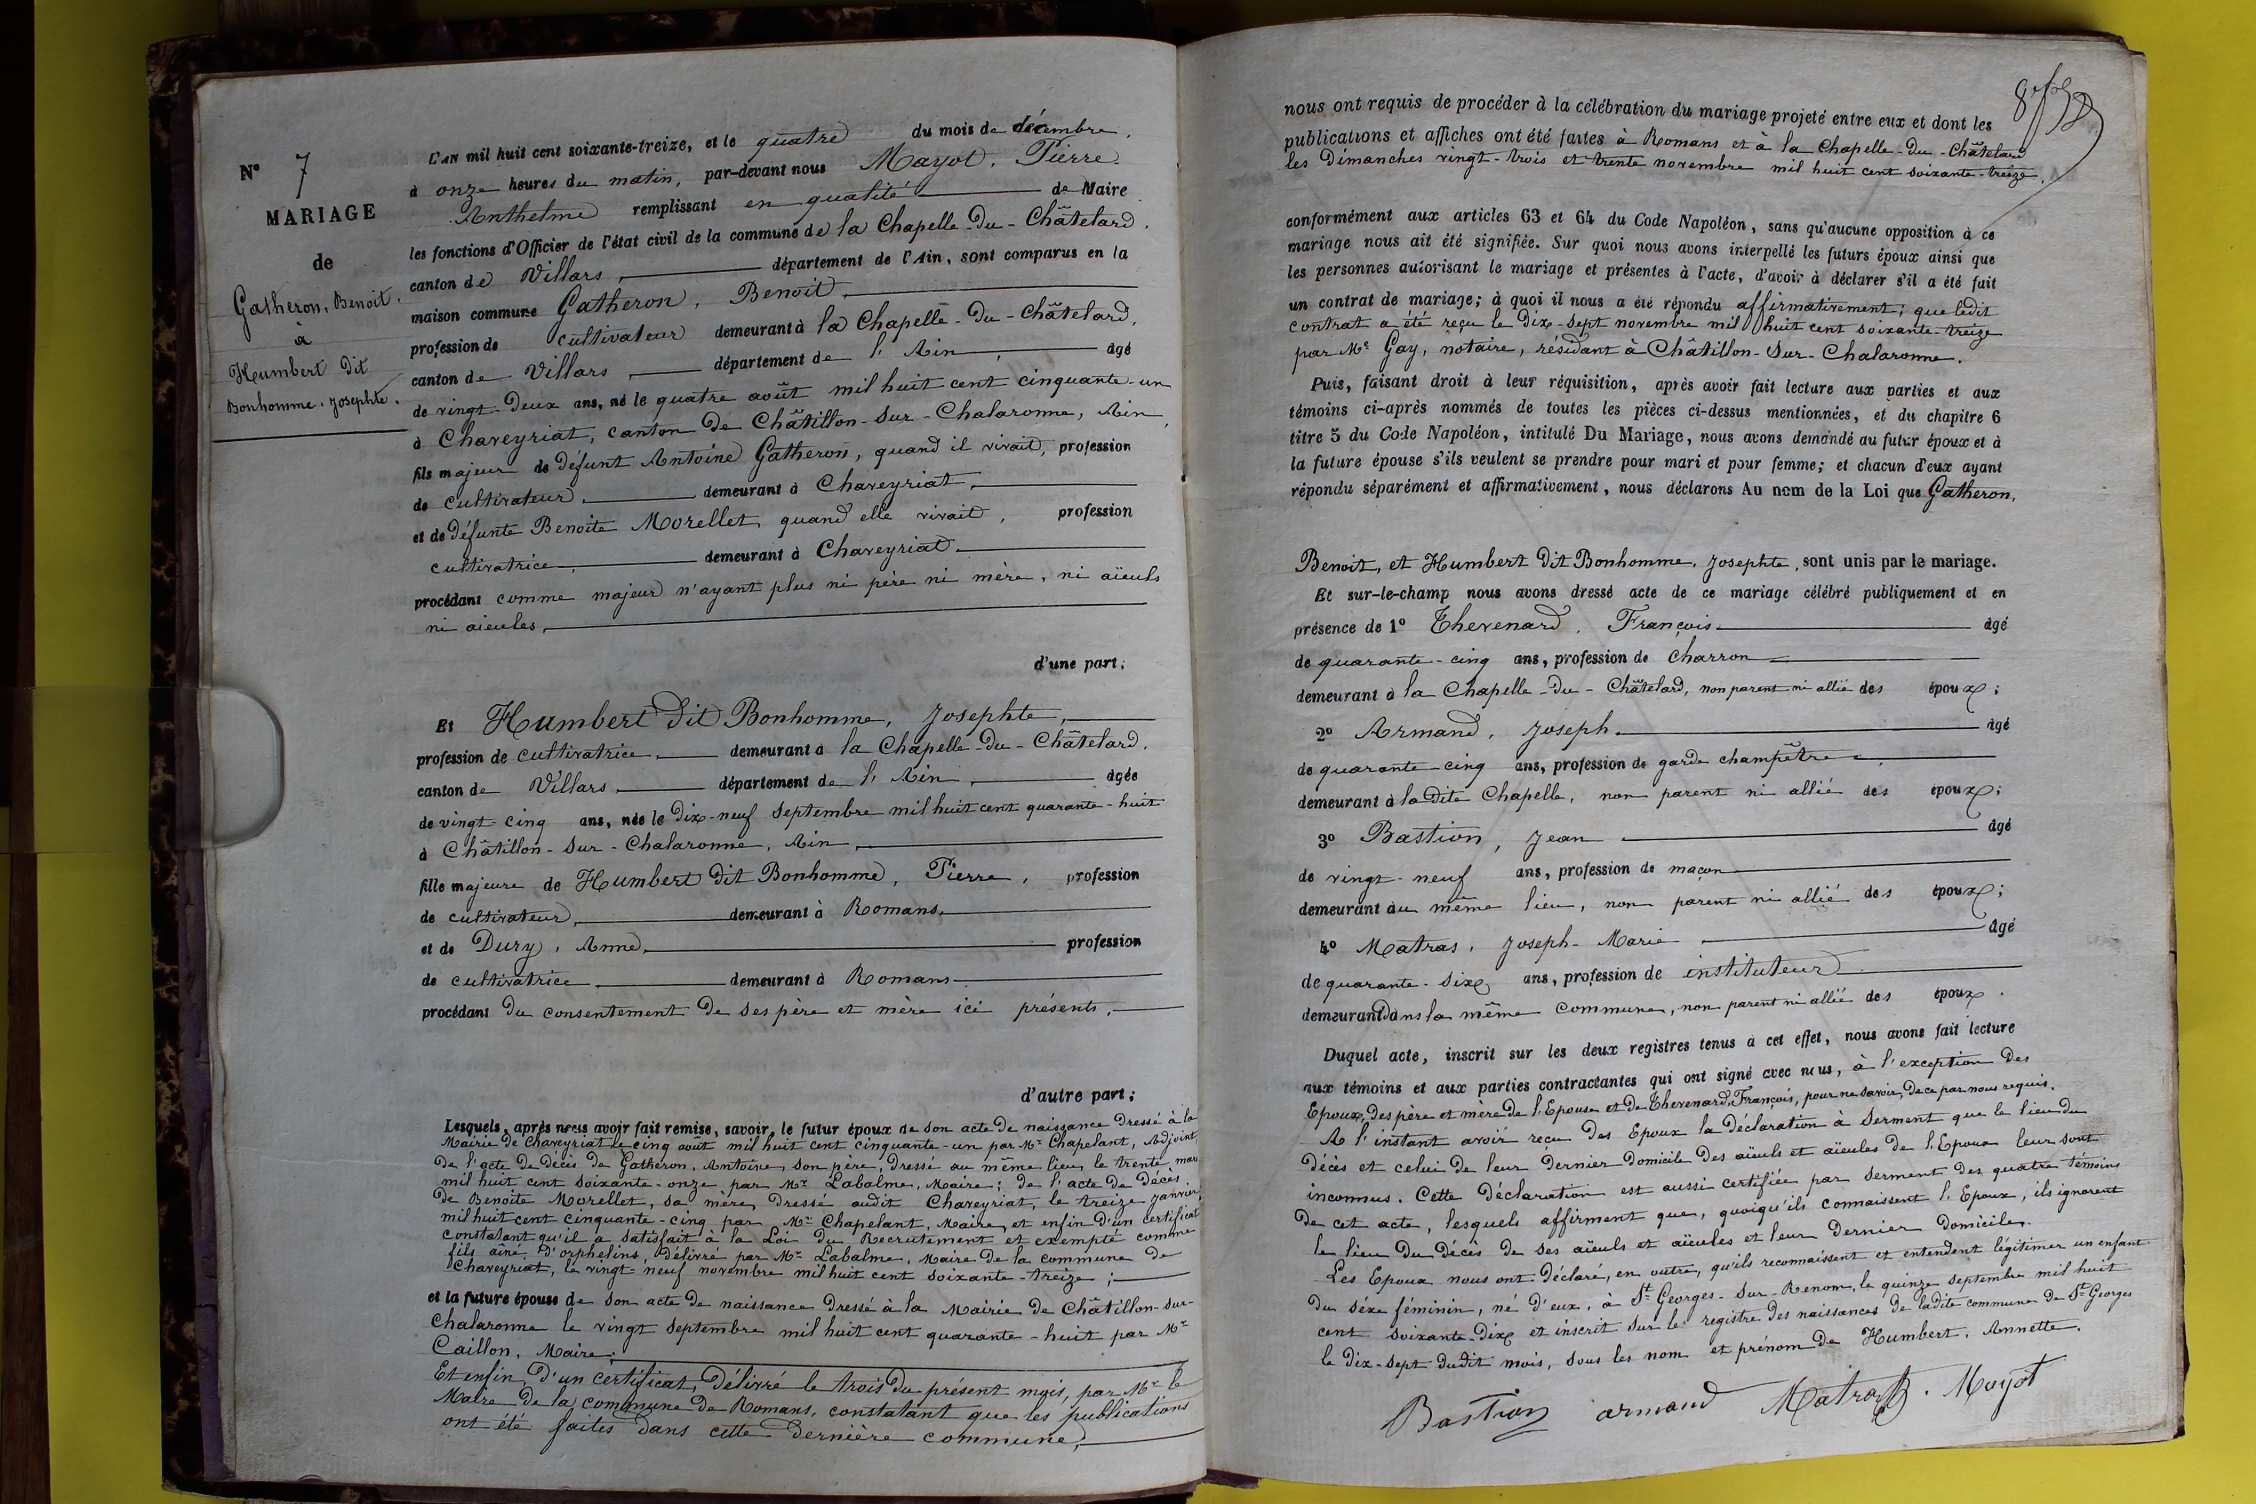 N° 7
MARIAGE
de
Gatheron, Benoit.
à
Humbert dit
Bonhomme, Josephte.
L'AN mil huit cent soixante-treize, et le quatre du mois de décembre,
à onze heures du matin, par-devant nous Mayot, Pierre
Anthelme remplissant en qualité de Maire
les fonctions d'Officier de l'état civil de la commune de la Chapelle-du-Châtelard,
canton de Villars, département de l'Ain, sont comparus en la
maison commune Gatheron, Benoit,
profession de cultivateur demeurant à la Chapelle-du-Châtelard,
canton de Villars, département de l'Ain, âgé
de vingt-deux ans, né le quatre août mil huit cent cinquante-un
à Chaveyriat, canton de Châtillon-sur-Chalaronne, Ain,
fils majeur de défunt Antoine Gatheron, quand il vivait, profession
de cultivateur, demeurant à Chaveyriat,
et de défunte Benoite Morellet, quand elle vivait, profession
cultivatrice, demeurant à Chaveyriat,
procédant comme majeur n'ayant plus ni père ni mère, ni aïeuls
ni aieules,
d'une part;
Et Humbert dit Bonhomme, Josephte,
profession de cultivatrice, demeurant à la Chapelle-du-Châtelard,
canton de Villars, département de l'Ain, âgée
de vingt-cinq ans, née le dix-neuf septembre mil huit cent quarante-huit
à Châtillon-sur-Chalaronne, Ain,
fille majeure de Humbert dit Bonhomme, Pierre, profession
de cultivateur, demeurant à Romans,
et de Dury, Anne, profession
de cultivatrice, demeurant à Romans
procédant du consentement de ses père et mère ici présents,
d'autre part;
Lesquels, après nous avoir fait remise, savoir, le futur époux de son acte de naissance dressé à la
Mairie de Chaveyriat le cinq août mil huit cent cinquante-un par Mr Chapelant, Adjoint,
de l'acte de décès de Gatheron, Antoine, son père, dressé au même lieu, le trente mars
mil huit cent soixante-onze par Mr Labalme, Maire; de l'acte de décès
de Benoite Morellet, sa mère, dressé audit Chaveyriat, le treize janvier
mil huit cent cinquante-cinq par Mr Chapelant, Maire, et enfin d'un certificat
constatant qu'il a satisfait à la Loi du Recrutement et exempté comme
fils aîné d'orphelins, délivré par Mr Labalme, Maire de la commune de
Chaveyriat, le vingt-neuf novembre mil huit cent soixante-treize;
et la future épouse de son acte de naissance dressé à la Mairie de Châtillon-sur-
Chalaronne le vingt septembre mil huit cent quarante-huit par Mr
Caillon, Maire;
Et enfin, d'un certificat, délivré le trois du présent mois, par Mr le
Maire de la commune de Romans, constatant que les publications
ont été faites dans cette dernière commune,
nous ont requis de procéder à la célébration du mariage projeté entre eux et dont les
publications et affiches ont été faites à Romans et à la Chapelle-du-Châtelard
les Dimanches vingt-trois et trente novembre mil huit cent soixante-treize,
conformément aux articles 63 et 64 du Code Napoléon, sans qu'aucune opposition à ce
mariage nous ait été signifiée. Sur quoi nous avons interpellé les futurs époux ainsi que
les personnes autorisant le mariage et présentes à l'acte, d'avoir à déclarer s'il a été fait
un contrat de mariage; à quoi il nous a été répondu affirmativement; que ledit
contrat a été reçu le dix-sept novembre mil huit cent soixante-treize
par Me Gay, notaire, résidant à Châtillon-sur-Chalaronne.
Puis, faisant droit à leur réquisition, après avoir fait lecture aux parties et aux
témoins ci-après nommés de toutes les pièces ci-dessus mentionnées, et du chapitre 6
titre 5 du Code Napoléon, intitulé Du Mariage, nous avons demandé au futur époux et à
la future épouse s'ils veulent se prendre pour mari et pour femme; et chacun d'eux ayant
répondu séparément et affirmativement, nous déclarons Au nom de la Loi que Gatheron,
Benoit, et Humbert dit Bonhomme, Josephte, sont unis par le mariage.
Et sur-le-champ nous avons dressé acte de ce mariage célébré publiquement et en
présence de 1° Thevenard, François âgé
de quarante-cinq ans, profession de charron
demeurant à la Chapelle-du-Châtelard, non parent ni allié des époux;
2° Armand, Joseph. âgé
de quarante-cinq ans, profession de garde champêtre
demeurant à ladite Chapelle, non parent ni allié des époux;
3° Bastion, Jean âgé
de vingt-neuf ans, profession de maçon
demeurant au même lieu, non parent ni allié des époux;
4° Matras, Joseph-Marie âgé
de quarante-six ans, profession de instituteur
demeurant dans la même commune, non parent ni allié des époux.
Duquel acte, inscrit sur les deux registres tenus à cet effet, nous avons fait lecture
aux témoins et aux parties contractantes qui ont signé avec nous, à l'exception des
Epoux, des père et mère de l'Epouse et de Thevenard, François, pour ne savoir, de ce par nous requis.
A l'instant avoir reçu des Epoux la déclaration à serment que le lieu du
décès et celui de leur dernier domicile des aïeuls et aïeules de l'Epoux leur sont
inconnus. Cette déclaration est aussi certifiée par serment des quatre témoins
de cet acte, lesquels affirment que, quoiqu'ils connaissent l'Epoux, ils ignorent
le lieu du décès de ses aïeuls et aïeules et leur dernier domicile.
Les Epoux nous ont déclaré, en outre, qu'ils reconnaissent et entendent légitimer un enfant
du séxe féminin, né d'eux, à St Georges-sur-Renom, le quinze septembre mil huit
cent soixante-dix et inscrit sur le registre des naissances de ladite commune de St Georges
le dix-sept dudit mois, sous les nom et prénom de Humbert, Annette.
Bastion armand Matras Mayot